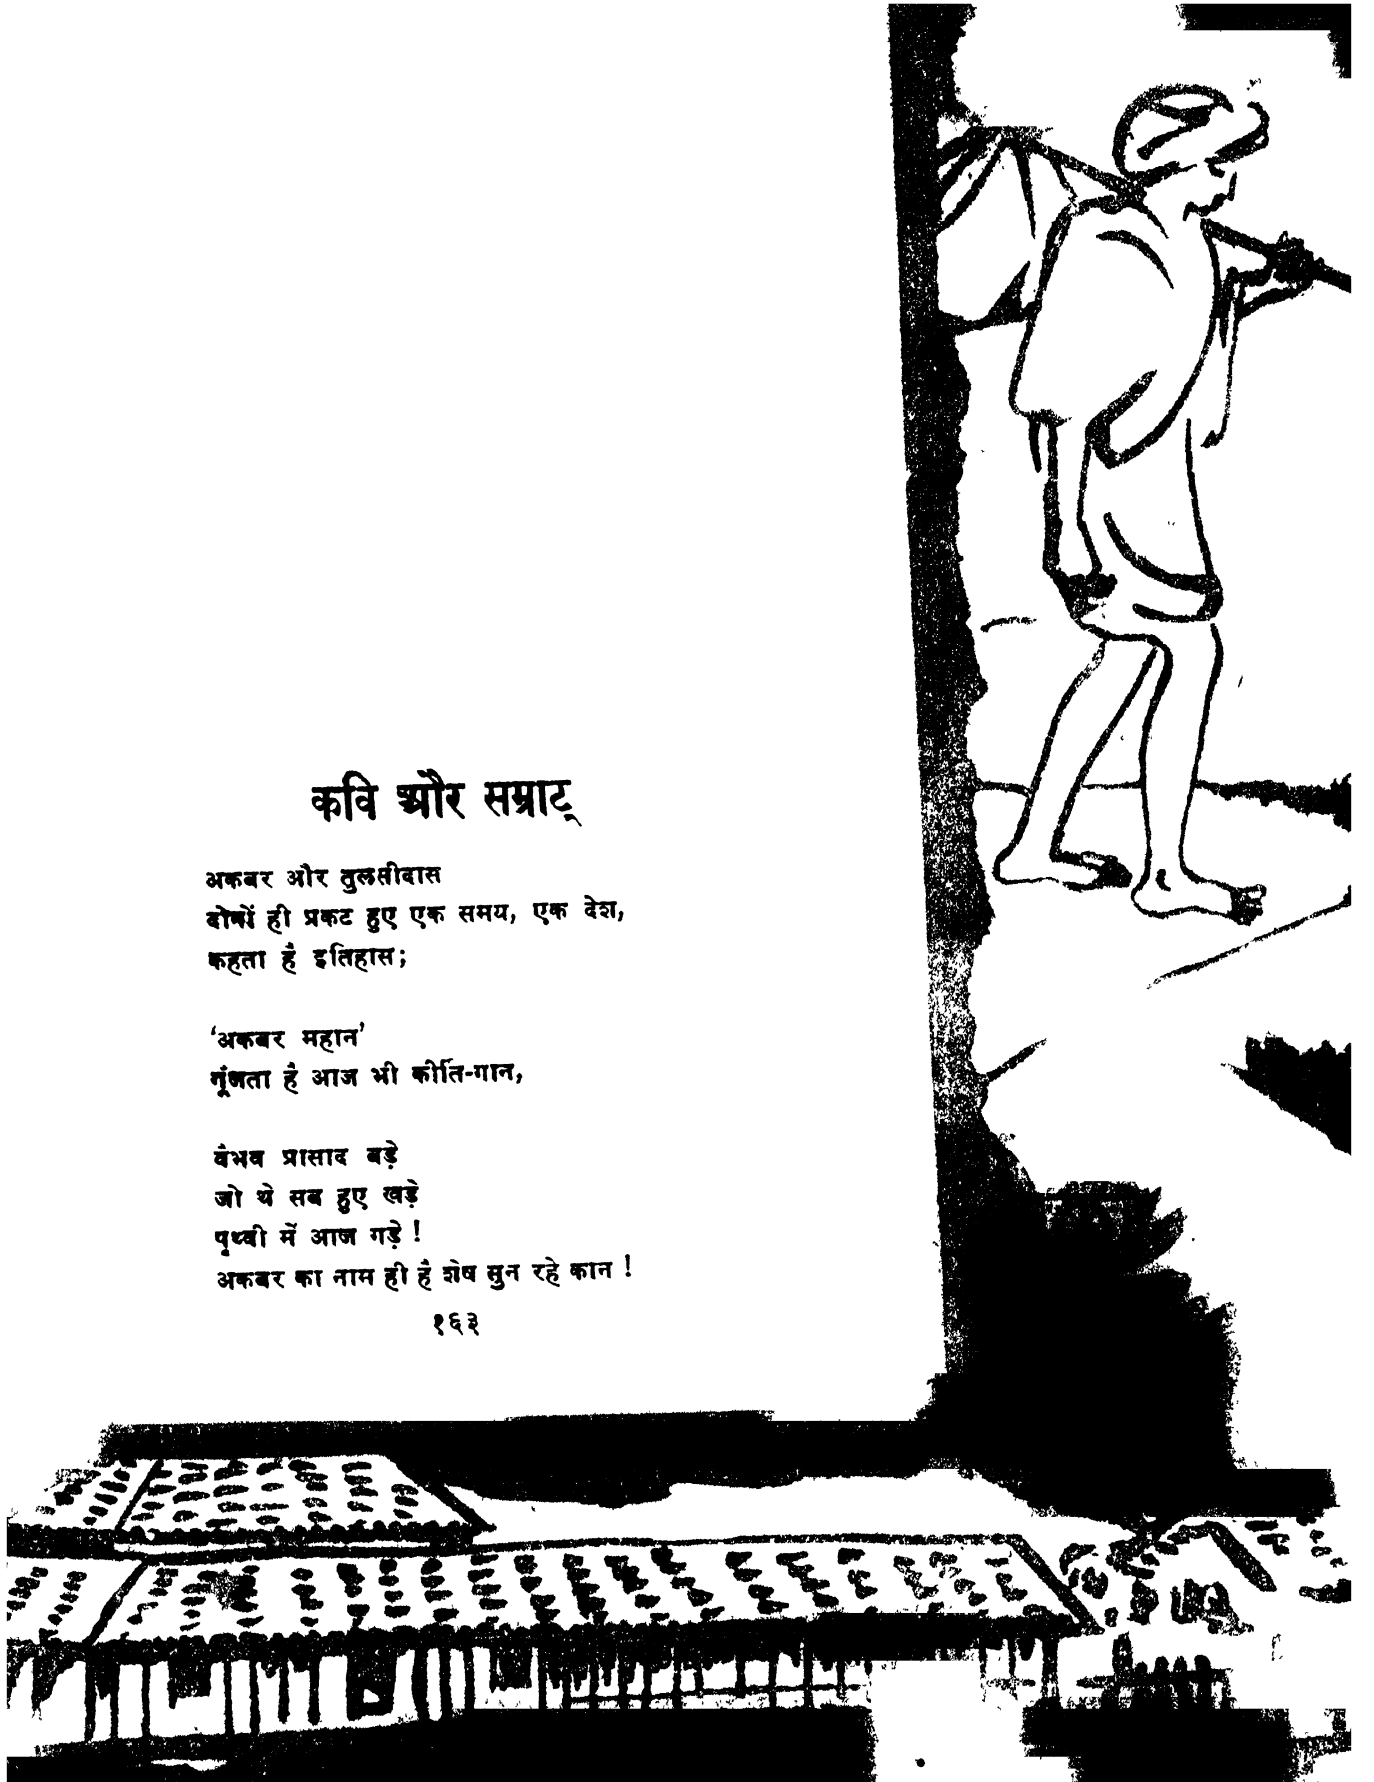 कवि और सम्राट्
अकबर और तुलसीदास
दोनों ही प्रकट हुए एक समय, एक देश,
कहता है इतिहास;
‘अकबर महान’
गूंजता है आज भी कीर्ति-गान,
वैभव प्रासाद बड़े
जो थे सब हुए खड़े
पृथ्वी में आज गड़े !
अकबर का नाम ही है शेष सुन रहे कान !
१६३